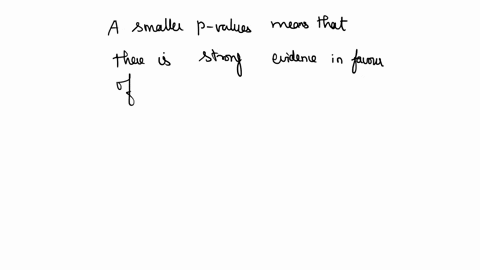 A smaller p-values means that
there is strong evidence in favour
of